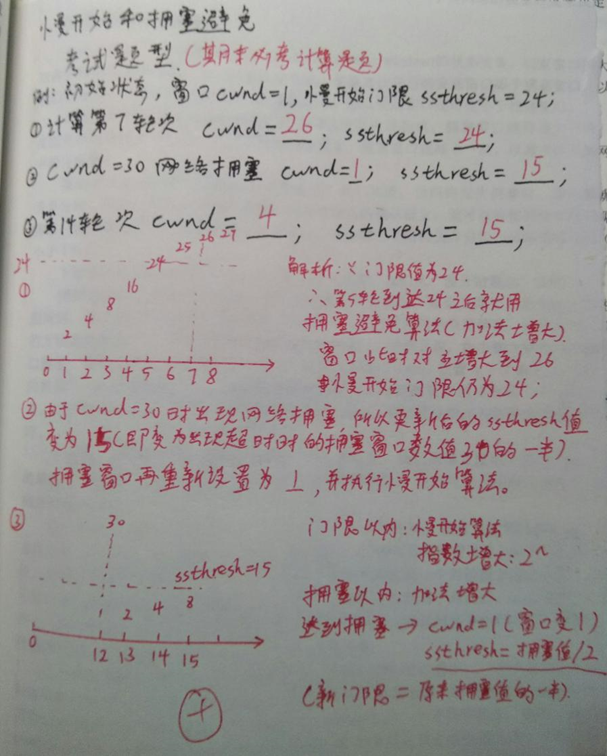 慢开始和拥塞避免
考试题型.(其期末必考计算题)
例:初始状态,窗口cwnd=1,慢开始门限ssthresh=24;
①计算第7轮次 cwnd=26; ssthresh=24;
②cwnd=30网络拥塞 cwnd=1; ssthresh=15;
③第14轮次 cwnd=4; ssthresh=15;
24 24 25 26 27
①
16
8
4
2
0 1 2 3 4 5 6 7 8
解析:∵门限值为24.
∴第5轮到达24之后就用
拥塞避免算法(加法增大).
窗口此时对应增大到26
慢开始门限仍为24;
②由于cwnd=30时出现网络拥塞,所以更新后的ssthresh值
变为15(即变为出现超时时的拥塞窗口数值30的一半).
拥塞窗口再重新设置为1,并执行慢开始算法。
③
30
ssthresh=15
1 2 4 8
0 12 13 14 15
门限以内:慢开始算法
指数增大:2ⁿ
拥塞以内:加法增大
达到拥塞→cwnd=1(窗口变1)
ssthresh=拥塞值/2
(新门限=原来拥塞值的一半).